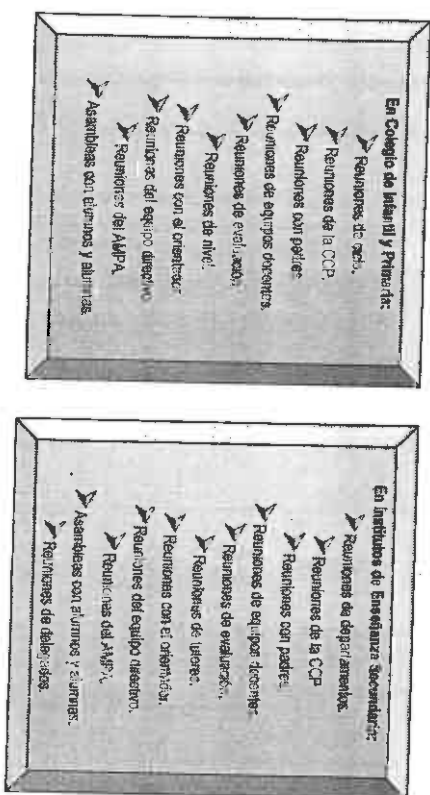 En Colegio de Infantil y Primaria:
Reuniones de ciclo.
Reuniones de la CCP.
Reuniones con padres.
Reuniones de equipos docentes.
Reuniones de evaluación.
Reuniones de nivel.
Reuniones con el orientador.
Reuniones del equipo directivo.
Reuniones del AMPA.
Asambleas con alumnos y alumnas.
En Institutos de Enseñanza Secundaria:
Reuniones de departamentos.
Reuniones de la CCP.
Reuniones con padres.
Reuniones de equipos docentes.
Reuniones de evaluación.
Reuniones de tutores.
Reuniones con el orientador.
Reuniones del equipo directivo.
Reuniones del AMPA.
Asambleas con alumnos y alumnas.
Reuniones de delegados.